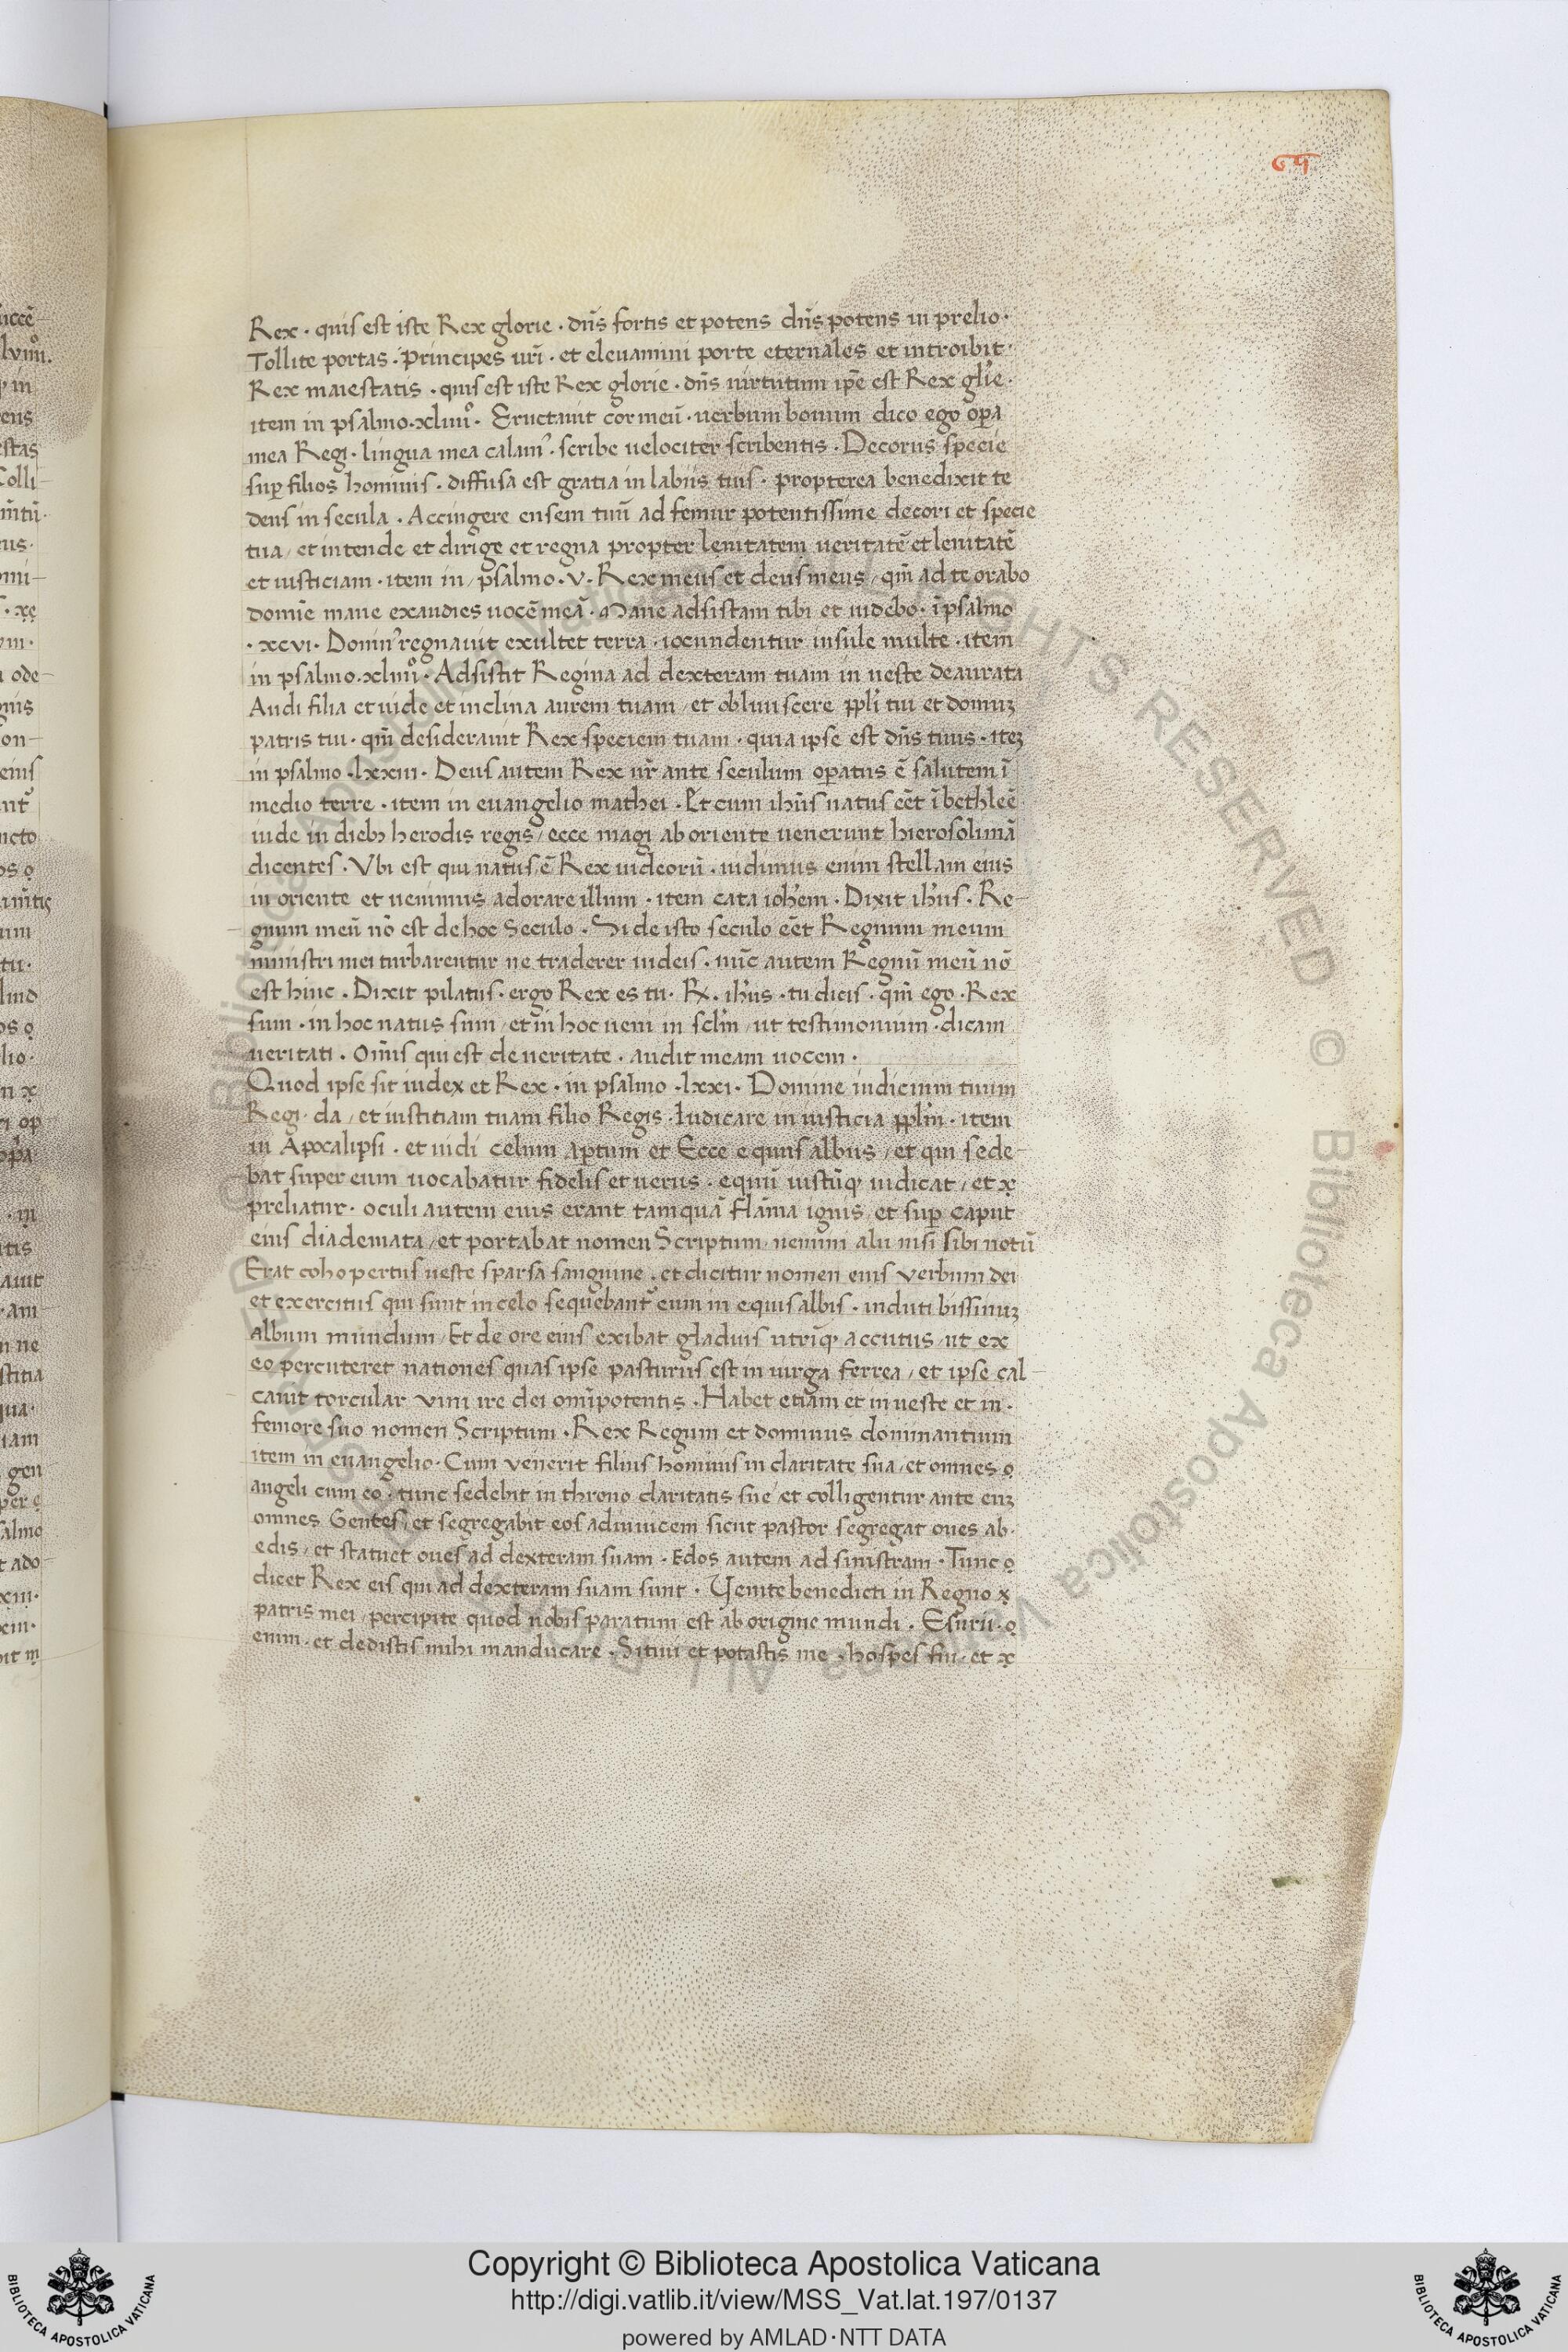 69
Rex · quis est iste Rex glorie · dn̄s fortis et potens dn̄s potens in prelio ·
Tollite portas · principes ur̄i · et eleuamini porte eternales et introibit ·
Rex maiestatis · quis est iste Rex glorie · dn̄s uirtutum ip̄e est Rex gl̄ie ·
item in psalmo · xliiii° · Eructauit cor meū · uerbum bonum dico ego oꝑa
mea Regi · lingua mea calamꝰ · scribe uelociter scribentis · Decorus specie
suꝑ filios hominis · diffusa est gratia in labiis tuis · propterea benedixit te
deus in secula · Accingere ensem tuū ad femur potentissime decori et specie
tua / et intende et dirige et regna propter lenitatem ueritatē et lenitatē
et iusticiam · item in / psalmo · v · Rex meus et deus meus / qm̄ ad te orabo
domīe mane exaudies uocē meā · Mane adsistam tibi et uidebo · ī psalmo
· xcvi · Dominꝰ regnauit exultet terra · iocundentur insule multe · item
in psalmo · xliiii° · Adsistit Regina ad dexteram tuam in ueste deaurata
Audi filia et uide et inclina aurem tuam / et obliuiscere ꝑpl̄i tui et domuꝫ
patris tui · qm̄ desiderauit Rex speciem tuam · quia ipse est dn̄s tuus · iteꝫ
in psalmo · lxxiii · Deus autem Rex ur̄ ante seculum oꝑatus ē salutem ī
medio terre · item in euangelio mathei · Et cum ihūs natus eēt ī bethleē
iude in diebꝫ herodis regis / ecce magi ab oriente uenerunt hierosolimā
dicentes · Vbi est qui natus ē Rex iudeorū · uidimus enim stellam eius
in oriente et uenimus adorare illum · item cata ioh̄em · Dixit ih̄us · Re-
gnum meū nō est de hoc Seculo · Si de isto seculo eēt Regnum meum
ministri mei turbarentur ne traderer iudeis · nūc autem Regnū meū nō
est hinc · Dixit pilatus · ergo Rex es tu · ℞ · ih̄us · tu dicis · qm̄ ego · Rex
sum · in hoc natus sum / et in hoc ueni in scl̄m / ut testimonium · dicam
ueritati · Om̄is qui est de ueritate · audit meam uocem ·
Quod ipse sit iudex et Rex · in psalmo · lxxi · Domine iudicium tuum
Regi · da / et iustitiam tuam filio Regis · Iudicare in iusticia ꝑpl̄m · item
in Apocalipsi · et uidi celum aꝑtum et Ecce equus albus / et qui sede-
bat super eum uocabatur fidelis et uerus · equū iustūqꝫ iudicat / et x
preliatur · oculi autem eius erant tamquā flāma ignis / et suꝑ caput
eius diademata / et portabat nomen Scriptum / nemini alii nisi sibi notū
Erat cohopertus ueste sparsa sanguine · et dicitur nomen eius verbum dei
et exercitus qui sunt in celo sequebantꝰ eum in equis albis · induti bissinuꝫ
album mundum / Et de ore eius exibat gladius utrīqꝫ accutus / ut ex
eo percuteret nationes quas ipse pasturus est in uirga ferrea / et ipse cal-
cauit torcular vini ire dei om̄ipotentis · Habet etiam et in ueste et in ·
femore suo nomen Scriptum · Rex Regum et dominus dominantium
item in euangelio · Cum venerit filius hominis in claritate sua / et omnes o
angeli cum eo · tunc sedebit in throno claritatis sue / et colligentur ante euꝫ
omnes Gentes / et segregabit eos adinuicem sicut pastor segregat oues ab ·
edis / et statuet oues ad dexteram suam · Edos autem ad sinistram · Tunc o
dicet Rex eis qui ad dexteram suam sunt · Venite benedicti in Regno x
patris mei / percipite quod nobis paratum est ab origine mundi · Esurii · o
enim · et dedistis mihi manducare · Sitiui et potastis me · hospes fui · et x
Copyright © Biblioteca Apostolica Vaticana
http://digi.vatlib.it/view/MSS_Vat.lat.197/0137
powered by AMLAD·NTT DATA
BIBLIOTECA APOSTOLICA VATICANA
BIBLIOTECA APOSTOLICA VATICANA